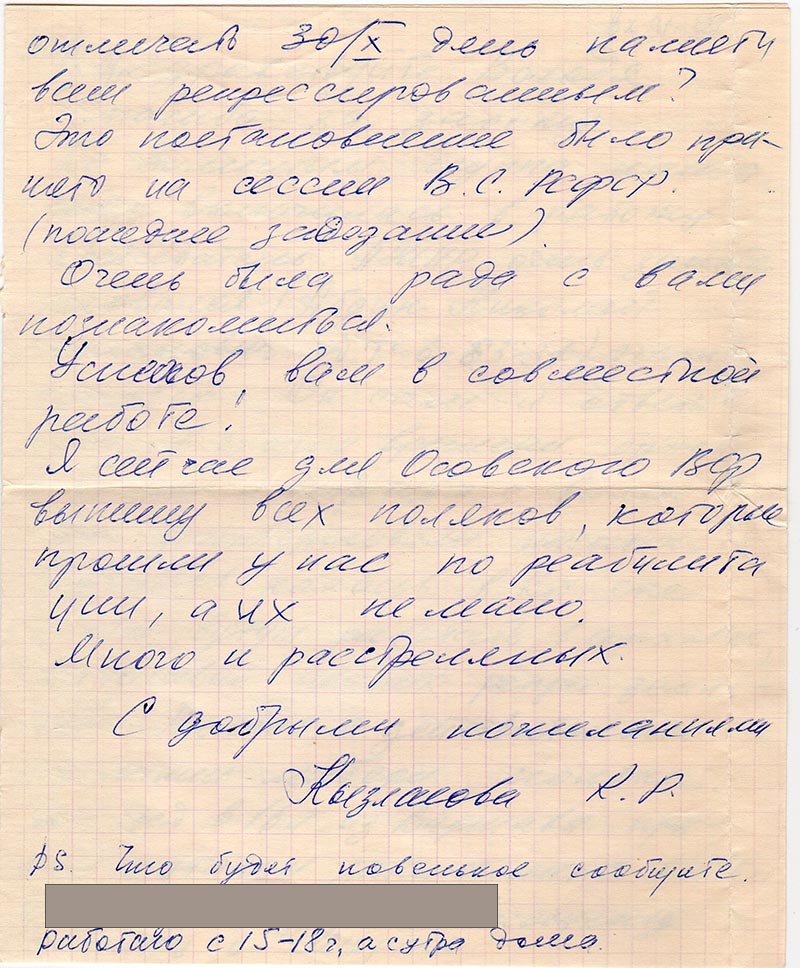 отмечать 30/X день памяти
всем репрессированным?
Это постановление было при-
нято на сессии В.С. РСФСР.
(последнее заседание).
Очень была рада с вами
познакомиться.
Успехов вам в совместной
работе!
Я сейчас для Осовского ВФ
выпишу всех поляков, которые
прошли у нас по реабилита
ции, а их не мало.
Много и расстрелянных.
С добрыми пожеланиями
Кызласова К.Р.
PS. Что будет новенькое сообщите.
работаю с 15-18ч, а с утра дома.